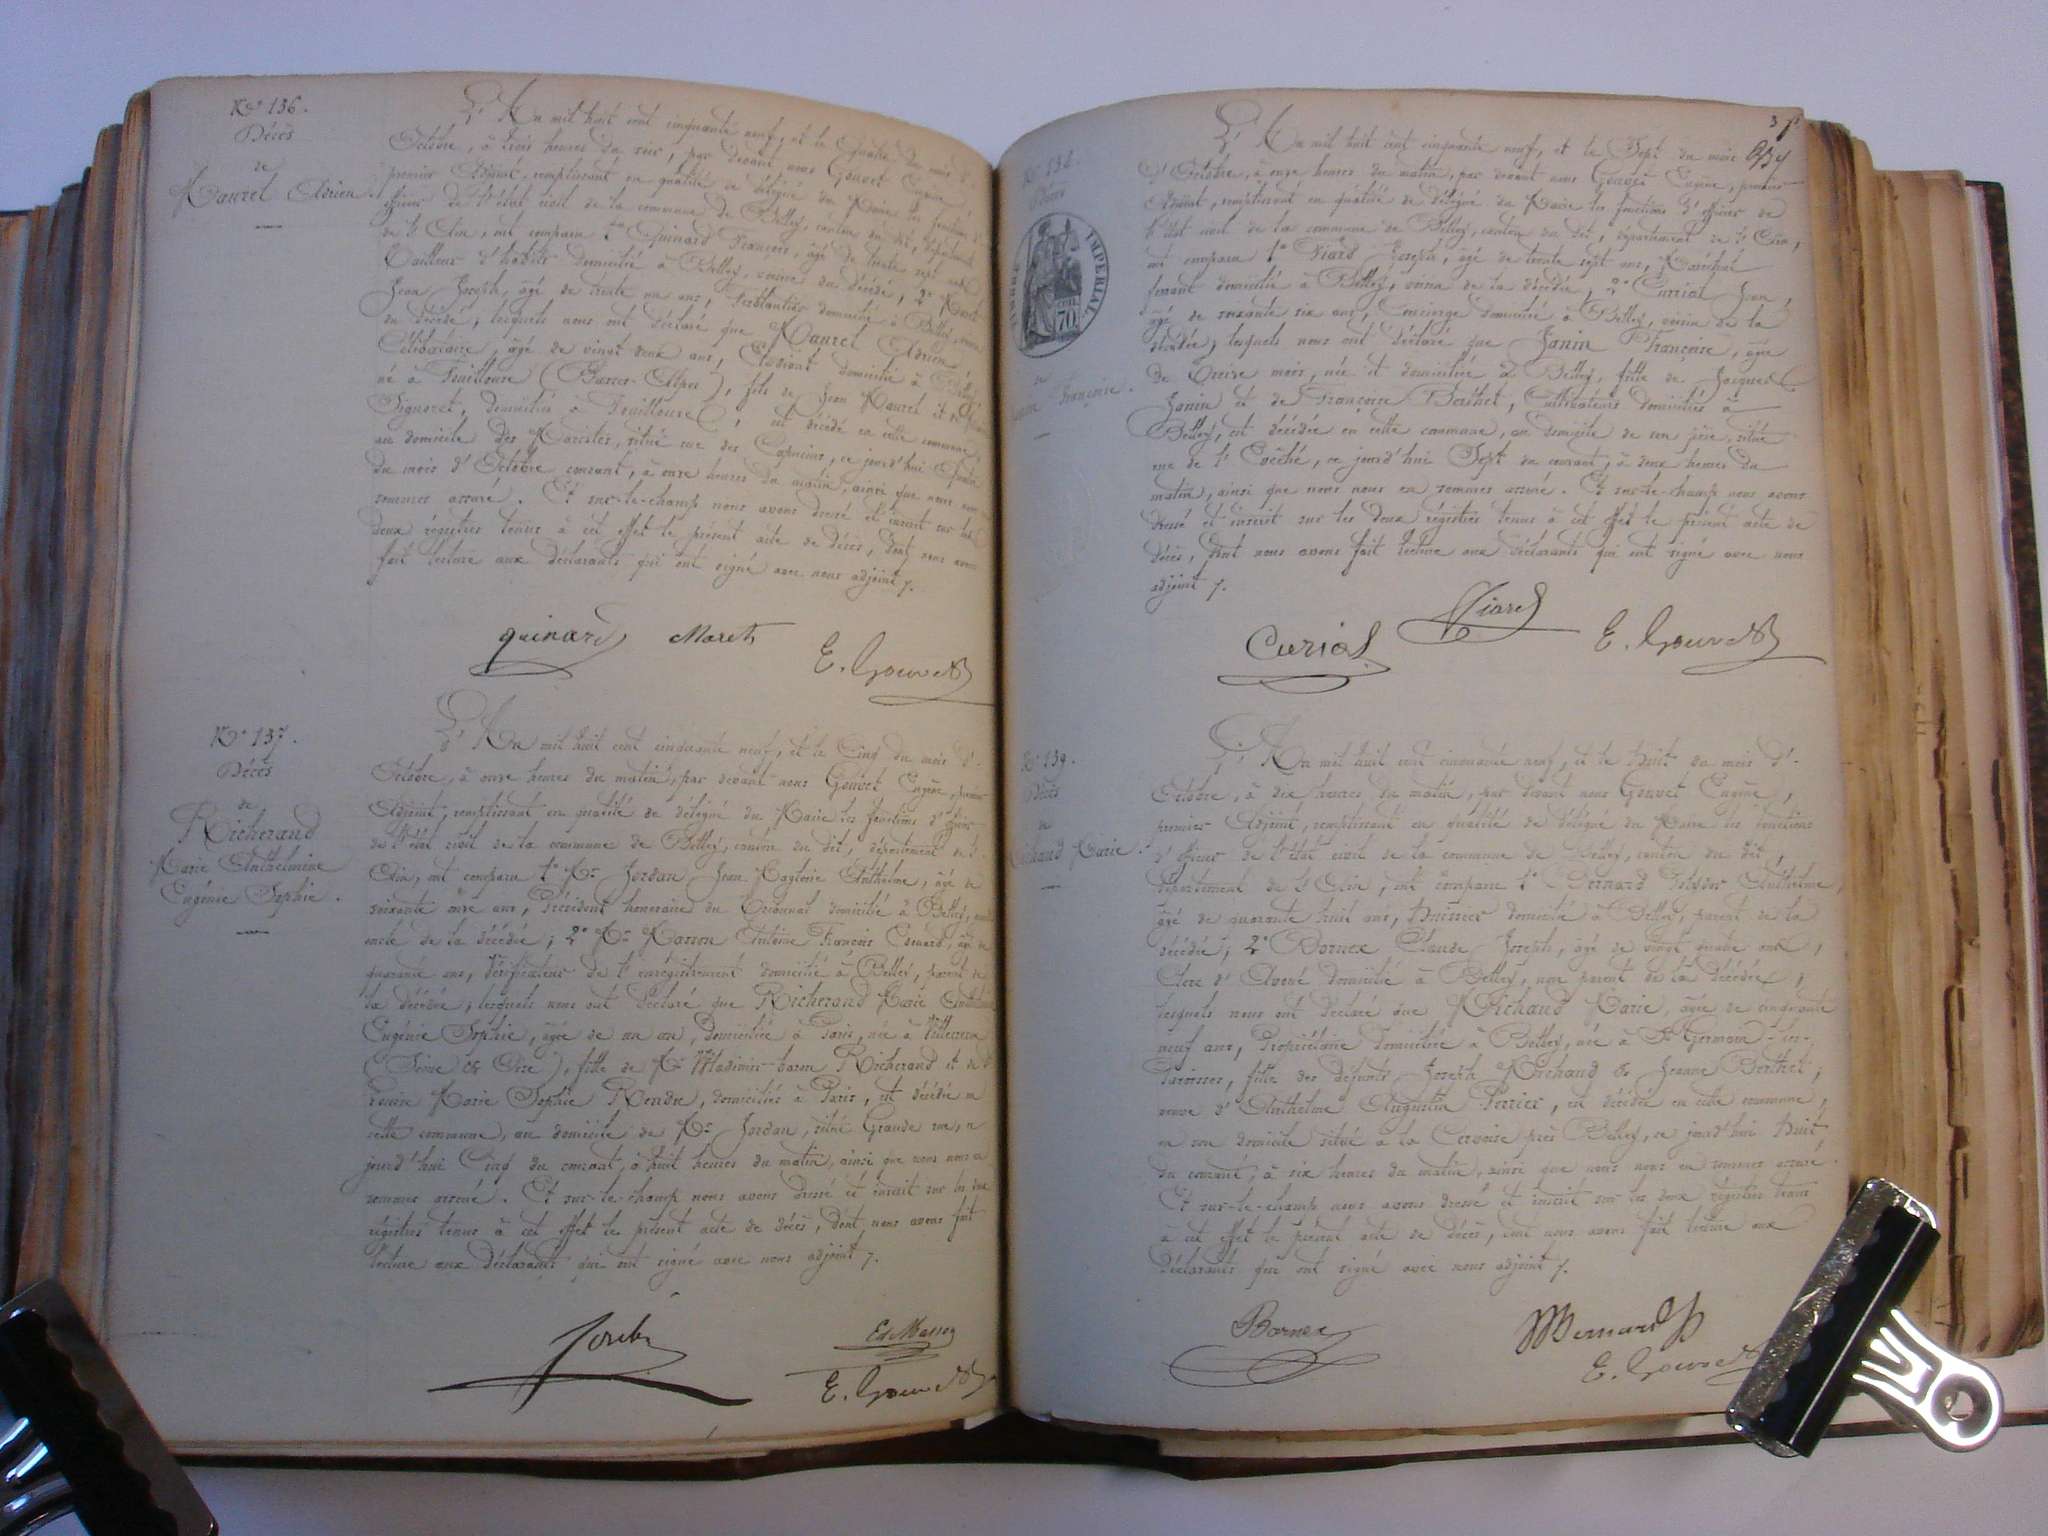 N.° 136.
Décès
de
Maurel Adrien.
L'An mil huit cent cinquante neuf, et le Quatre du mois d'
Octobre, à trois heures du soir, par devant nous Gouvet Eugène
premier Adjoint, remplissant en qualité de délégué du Maire les fonctions d'
officier de l'état civil de la commune de Belley, canton du dit, département
de l'Ain, ont comparu 1° Guinard François, âgé de trente sept ans
Tailleur d'habits domicilié à Belley, voisin du décédé, 2°
Jean Joseph, âgé de trente un ans, domicilié à Belley,
du décédé; lesquels nous ont déclaré que Maurel Adrien
Célibataire, âgé de vingt deux ans, Etudiant domicilié à Belley,
né à Fouillouse (Basses-Alpes), fils de Jean Maurel et de
Signoret, domiciliés à Fouillouse, est décédé en cette commune,
au domicile des Maristes, situé rue des Capucins, ce jourd'hui Quatre
du mois d'Octobre courant, à onze heures du matin, ainsi que nous nous
sommes assuré. Et sur-le-champ nous avons dressé et inscrit sur les
deux régistres tenus à cet effet le présent acte de décès, dont nous avons
fait lecture aux déclarants qui ont signé avec nous adjoint.
guinard Maret
E. Gouvet
N.° 137.
Décès
de
Richerand
Marie Anthelmine
Eugénie Sophie.
L'An mil huit cent cinquante neuf, et le Cinq du mois d'
Octobre, à onze heures du matin, par devant nous Gouvet Eugène, premier
Adjoint, remplissant en qualité de délégué du Maire les fonctions d'officier
de l'état civil de la commune de Belley, canton du dit, département de l'
Ain, ont comparu 1° Mr Jordan Jean Anthelme, âgé de
soixante onze ans, Président honoraire du Tribunal domicilié à Belley,
oncle de la décédée; 2° Mr Masson Antoine François Edouard, âgé de
quarante ans, Vérificateur de l'enregistrement domicilié à Belley, parent de
la décédée; lesquels nous ont déclaré que Richerand Marie Anthelmine
Eugénie Sophie, âgée de un an, domiciliée à Paris, née à Villecresnes
(Seine & Oise), fille de Mr Wladimir baron Richerand et de
Louise Marie Sophie Rendu, domiciliés à Paris, est décédée en
cette commune, au domicile de Mr Jordan, situé Grande rue, ce
jourd'hui Cinq du courant, à huit heures du matin, ainsi que nous nous en
sommes assuré. Et sur-le-champ nous avons dressé et inscrit sur les deux
régistres tenus à cet effet le présent acte de décès, dont nous avons fait
lecture aux déclarants qui ont signé avec nous adjoint.
Jordan
Ed Masson
E. Gouvet
N.° 138.
Décès
TIMBRE IMPERIAL
70
de
Janin Françoise.
L'An mil huit cent cinquante neuf, et le Sept du mois
d'Octobre, à onze heures du matin, par devant nous Gouvet Eugène, premier
Adjoint, remplissant en qualité de délégué du Maire les fonctions d'officier de
l'état civil de la commune de Belley, canton du dit, département de l'Ain,
ont comparu 1° Viard Joseph, âgé de trente sept ans, Maréchal
ferrant domicilié à Belley, voisin de la décédée, 2° Curial Jean,
âgé de soixante six ans, Concierge domicilié à Belley, voisin de la
décédée, lesquels nous ont déclaré que Janin Françoise, âgée
de Treize mois, née et domiciliée à Belley, fille de Jacques
Janin et de Françoise Berthet, Cultivateurs domiciliés à
Belley, est décédée en cette commune, au domicile de son père, situé
rue de l'Evêché, ce jourd'hui Sept du courant, à deux heures du
matin, ainsi que nous nous en sommes assuré. Et sur-le-champ nous avons
dressé et inscrit sur les deux régistres tenus à cet effet le présent acte de
décès, dont nous avons fait lecture aux déclarants qui ont signé avec nous
adjoint.
Curial Viard E. Gouvet
N.° 139.
Décès
de
Michaud Marie.
L'An mil huit cent cinquante neuf, et le Huit du mois d'
Octobre, à dix heures du matin, par devant nous Gouvet Eugène,
premier Adjoint, remplissant en qualité de délégué du Maire les fonctions
d'officier de l'état civil de la commune de Belley, canton du dit,
département de l'Ain, ont comparu 1° Bernard Anthelme,
âgé de quarante huit ans, Huissier domicilié à Belley, parent de la
décédée; 2° Bornex Claude Joseph, âgé de vingt quatre ans,
Clerc d'Avoué domicilié à Belley, non parent de la décédée,
lesquels nous ont déclaré que Michaud Marie, âgée de cinquante
neuf ans, Propriétaire domiciliée à Belley, née à St Germain-les-
Paroisses, fille des défunts Joseph Michaud & Jeanne Berthet,
veuve d'Anthelme Augustin Perrier, est décédée en cette commune,
en son domicile situé à la Cervoise près Belley, ce jourd'hui Huit
du courant, à six heures du matin, ainsi que nous nous en sommes assuré.
Et sur-le-champ nous avons dressé et inscrit sur les deux régistres tenus
à cet effet le présent acte de décès, dont nous avons fait lecture aux
déclarants qui ont signé avec nous adjoint.
Bornex Bernard
E. Gouvet